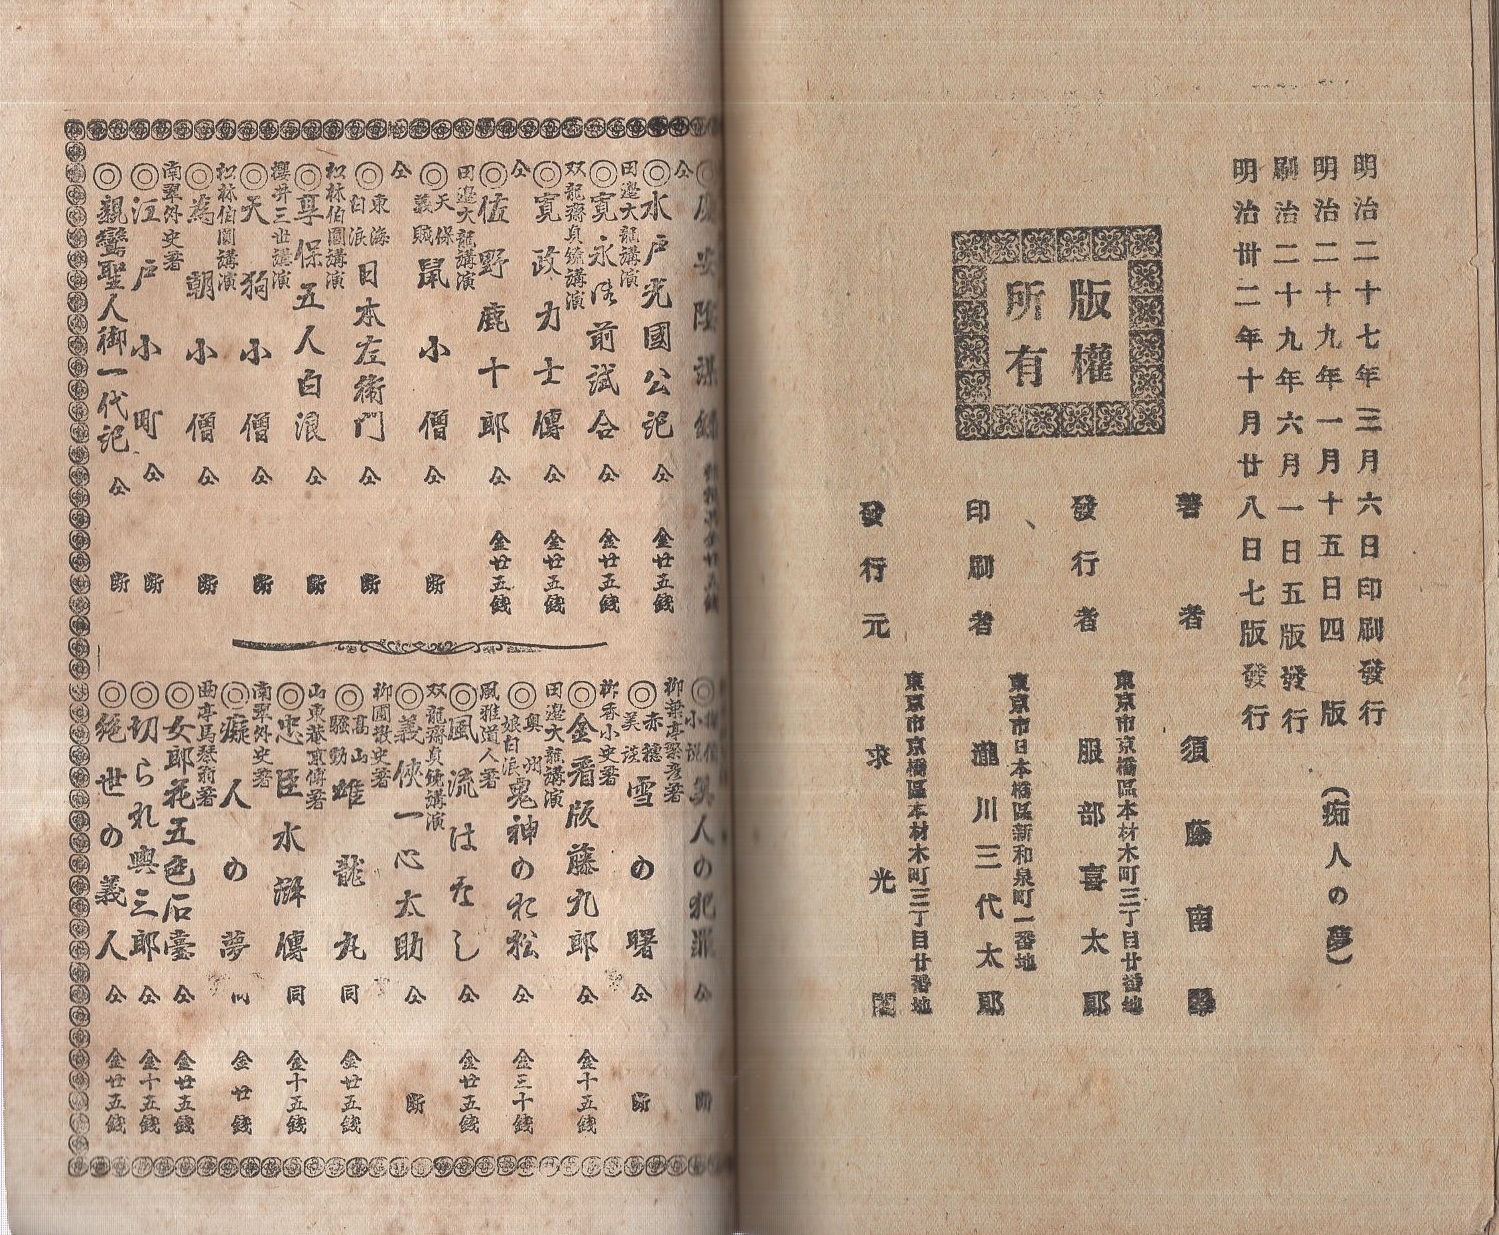 明治二十七年三月六日印刷發行
明治二十九年一月十五日四版
刷治二十九年六月一日五版發行
明治卅二年十月廿八日七版發行
(痴人の夢)
版權
所有
著者 須藤南翠
東京市京橋區本材木町三丁目廿番地
發行者 服部喜太郎
東京市日本橋區新和泉町一番地
印刷者 瀧川三代太郎
東京市京橋區本材木町三丁目廿番地
發行元 求光閣
◎慶安陰謀錄
仝
◎水戶光國公記 仝 金廿五錢
田邉大龍講演
◎寛永御前試合 仝 金廿五錢
双龍齋貞鏡講演
◎寛政力士傳 仝 金廿五錢
仝
◎佐野鹿十郎 仝 金廿五錢
田邉大龍講演
◎天保義賊鼠小僧 仝 斷
仝
◎東海白浪日本左衛門 仝 斷
松林伯圓講演
◎享保五人白浪 仝 斷
櫻井三世講演
◎天狗小僧 仝 斷
松林伯圓講演
◎為朝小僧 仝 斷
南翠外史著
◎江戶小町 仝 斷
◎親鸞聖人御一代記 仝 斷
◎探偵小說美人の犯罪 仝 斷
柳葉亭繁彦著
◎赤穂美談雪の曙 仝 斷
柳香小史著
◎金看版藤九郎 仝 金十五錢
田邉大龍講演
◎奥州娘白浪鬼神のお松 仝 金三十錢
風雅道人著
◎風流はなし 仝 金廿五錢
双龍齋貞鏡講演
◎義俠一心太助 仝 斷
柳圃散史著
◎高山騷動雌龍丸 同 金廿五錢
山東菴京傳著
◎忠臣水滸傳 同 金十五錢
南翠外史著
◎癡人の夢 同 金廿錢
曲亭馬琴翁著
◎女郎花五色石臺 仝 金廿五錢
◎切られ與三郎 仝 金十五錢
◎絕世の義人 仝 金廿五錢